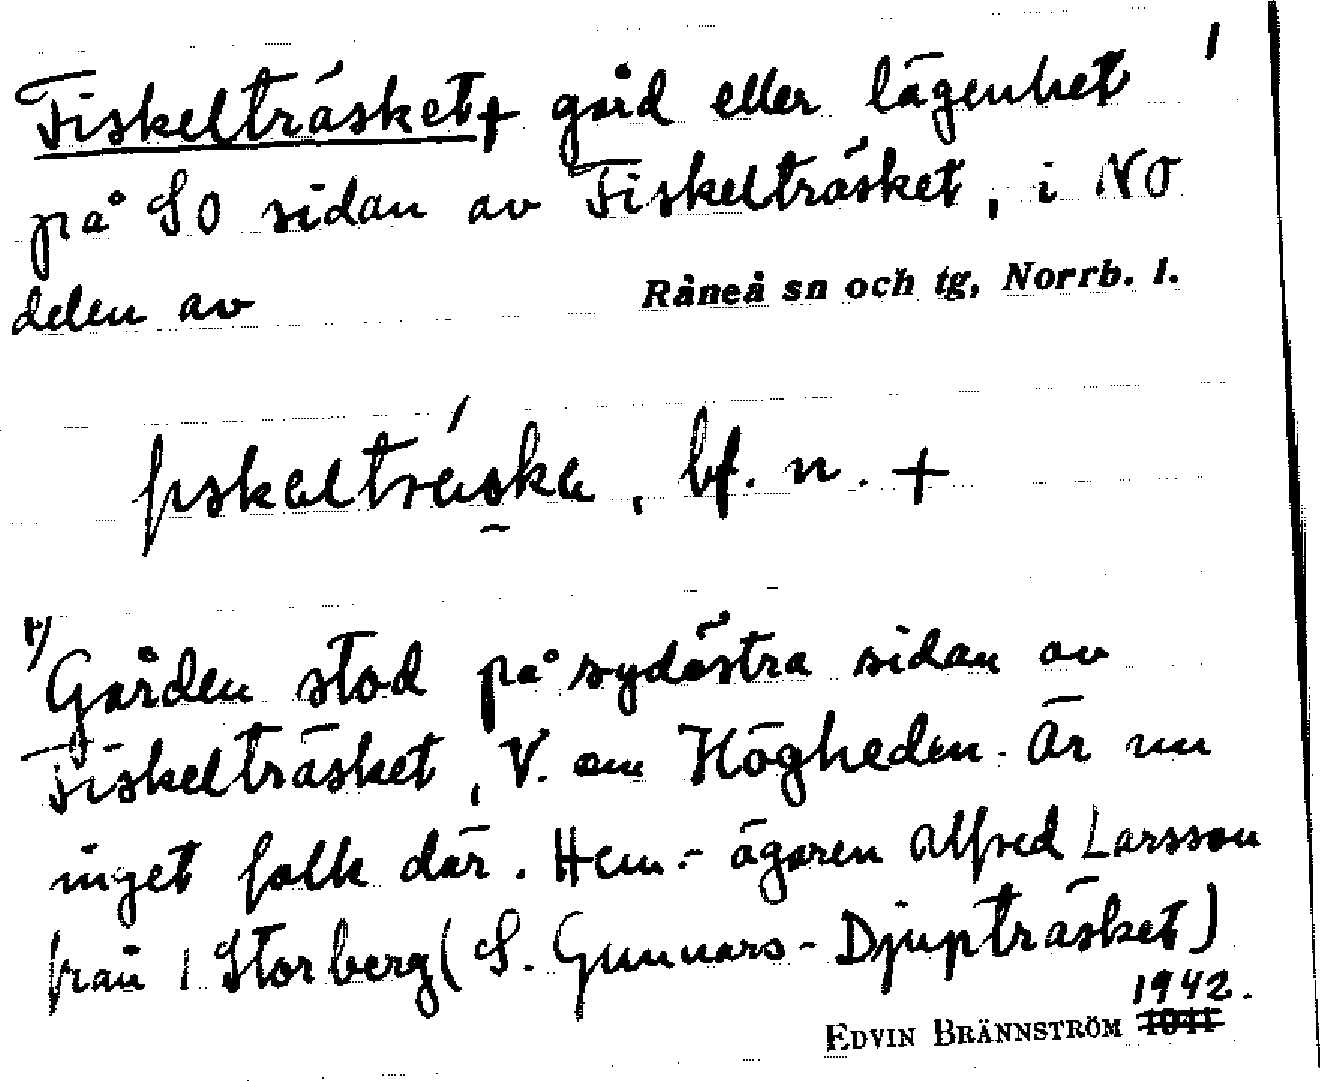 1
Fiskelträsket + gård eller lägenhet
på SO sidan av Fiskelträsket, i NO
delen av Råneå sn och tg, Norrb. l.
bf. n. +
1) Gården stod på sydöstra sidan av
Fiskelträsket, V. om Högheden. Är nu
inget folk där. Hem.-ägaren Alfred Larsson
från 1 Storberg (S. Gunnars-Djupträsket)
1942.
EDVIN BRÄNNSTRÖM 1941